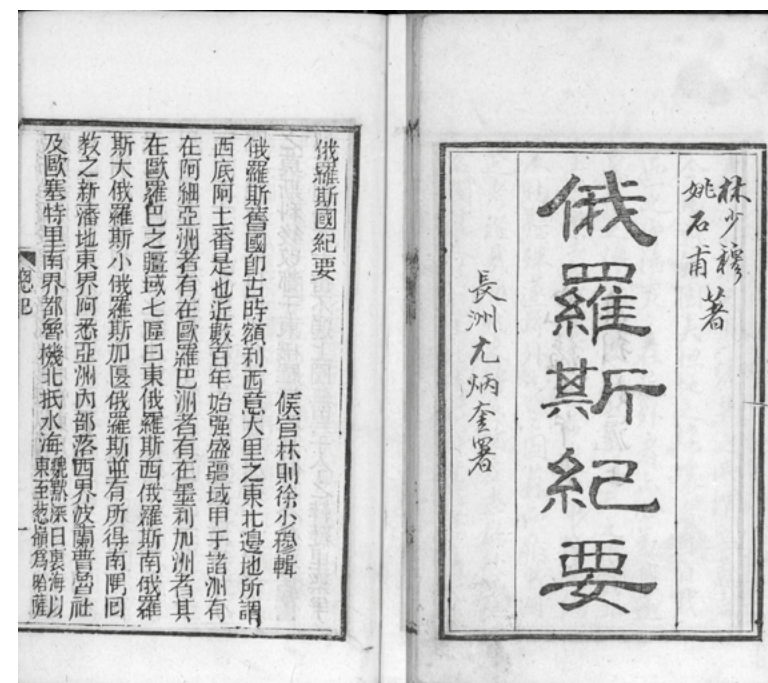 林少穆
姚石甫 著
俄羅斯紀要
長洲尤炳奎署
俄羅斯國紀要
侯官林則徐少穆輯
俄羅斯舊國卽古時額利西意大里之東北邊地所謂
西底阿土番是也近數百年始强盛疆域甲于諸洲有
在阿細亞洲者有在歐羅巴洲者有在墨利加洲者其
在歐羅巴之疆域七區曰東俄羅斯西俄羅斯南俄羅
斯大俄羅斯小俄羅斯加匽俄羅斯並有所得南隅回
教之新藩地東界阿悉亞洲內部落西界波蘭普魯社
及歐塞特里南界都魯機北抵氷海魏默深曰裏海以
東至葱嶺爲哈薩
總記
一